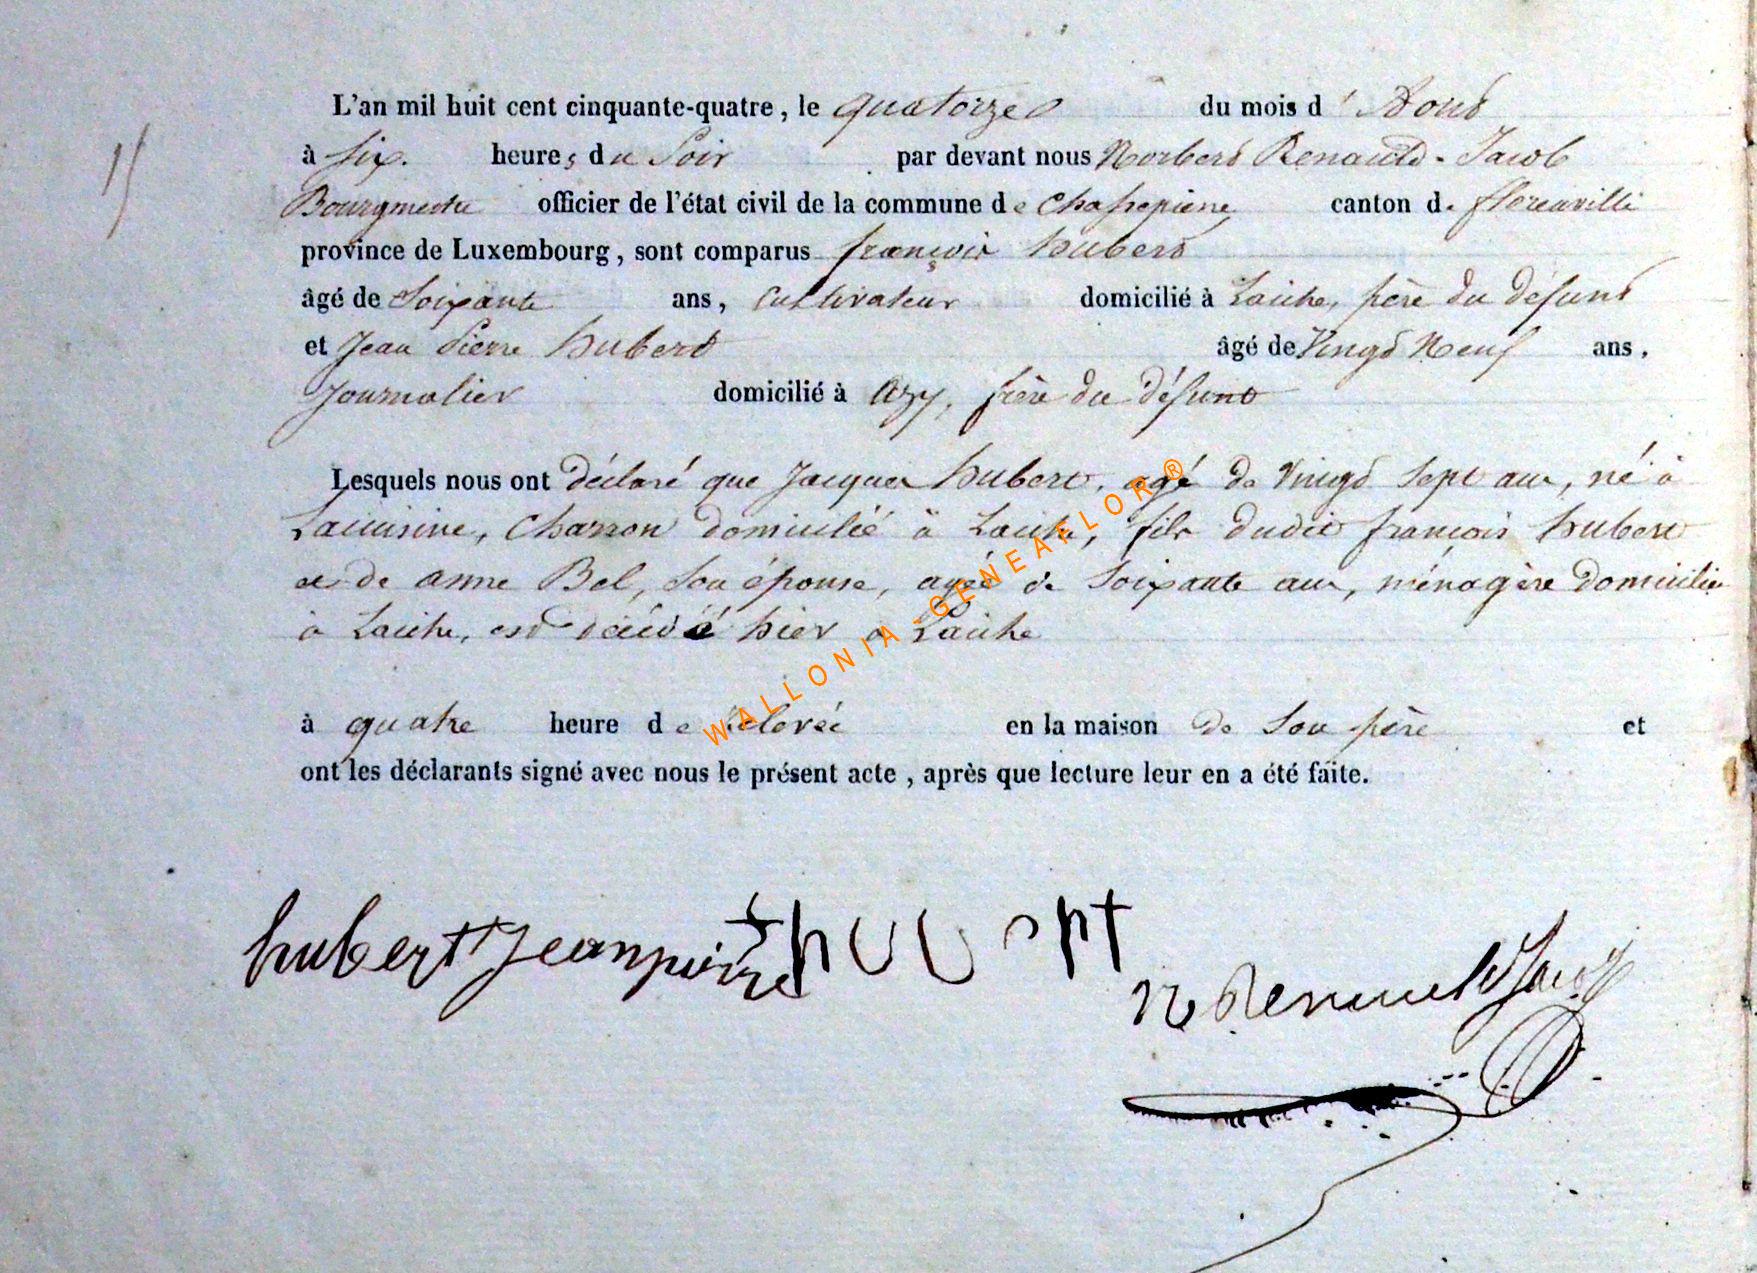 L'an mil huit cent cinquante-quatre, le quatorze du mois d'Aout
15
à six heures du Soir par devant nous Norbert Renauld-Jacob
Bourgmestre officier de l'état civil de la commune de Chassepierre canton de florenville
province de Luxembourg, sont comparus françois hubert
âgé de Soixante ans, Cultivateur domicilié à Laiche, père du défunt
et Jean Pierre hubert âgé de Vingt Neuf ans,
Journalier domicilié à Azy, frère du défunt
Lesquels nous ont déclaré que Jacques hubert, agé de Vingt Sept ans, né à
Lacuisine, Charron domicilié à Laiche, fils dudit françois hubert
et de anne Bel, Son épouse, agée de Soixante ans, ménagère domiciliée
à Laiche, est décédé hier à Laiche
à quatre heure de relevée en la maison de Son père et
ont les déclarants signé avec nous le présent acte, après que lecture leur en a été faite.
WALLONIA-GENEAFLOR®
hubert Jeanpierre f hubert
N Renauld Jacob